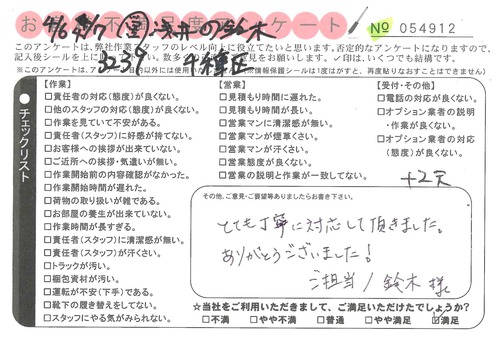 お客様不満足度アンケート
No 054912
このアンケートは、弊社作業スタッフのレベル向上に役立てたいと思います。否定的なアンケートになりますので、
33-39
【作業】
□責任者の対応(態度)が良くない。
□他のスタッフの対応(態度)が良くない。
□作業を見ていて不安がある。
□責任者(スタッフ)に好感が持てない。
□お客様への挨拶が出来ていない。
□ご近所への挨拶・気遣いが無い。
□作業開始前の内容確認がなかった。
□作業開始時間が遅れた。
□荷物の取り扱いが雑である。
□お部屋の養生が出来ていない。
□作業時間が長すぎる。
□責任者(スタッフ)に清潔感が無い。
□責任者(スタッフ)が汗くさい。
□トラックが汚い。
□梱包資材が汚い。
□運転が不安(下手)である。
□靴下の履き替えをしてない。
□スタッフにやる気がみられない。
【営業】
□見積もり時間に遅れた。
□見積もり時間が長い。
□営業マンに清潔感が無い。
□営業マンが煙草くさい。
□営業マンが汗くさい。
□営業態度が良くない。
□営業の説明と作業が一致してない。
【受付・その他】
□電話の対応が良くない。
□オプション業者の説明
・作業が良くない。
□オプション業者の対応
(態度)が良くない。
チェックリスト
その他、ご意見・ご要望等ありましたらお書き下さい。
とても丁寧に対応して頂きました。
ありがとうございました!
ご担当/鈴木様
☆当社をご利用いただきまして、ご満足いただけたでしょうか?
□不満 □やや不満 □普通 □やや満足 ☑満足